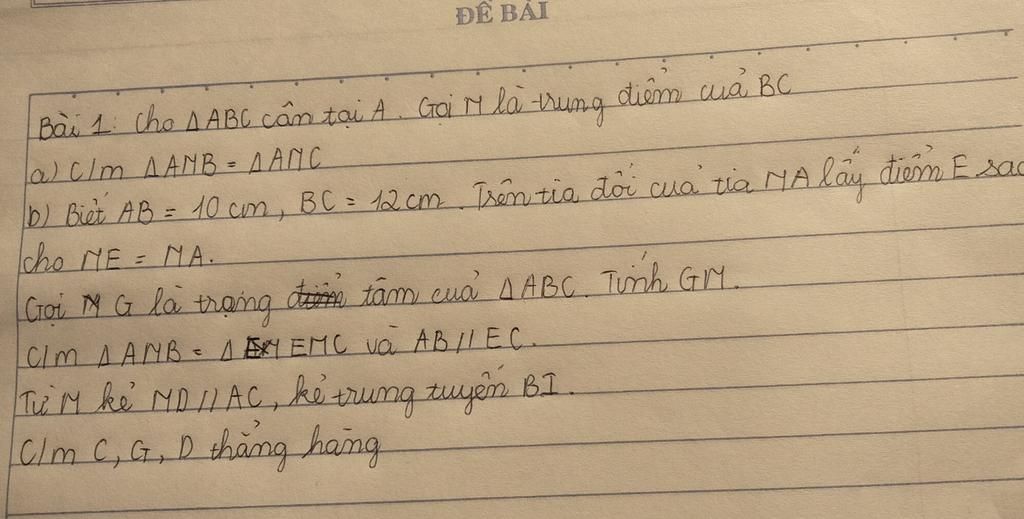 ĐỀ BÀI
Bài 1: Cho ΔABC cân tại A. Gọi M là trung điểm của BC
a) C/m ΔAMB = ΔAMC
b) Biết AB = 10 cm, BC = 12 cm. Trên tia đối của tia MA lấy điểm E sao
cho ME = MA.
Gọi G là trọng tâm của ΔABC. Tính GM.
C/m ΔAMB = Δ EMC và AB // EC.
Từ M kẻ MD // AC, kẻ trung tuyến BI.
C/m C, G, D thẳng hàng